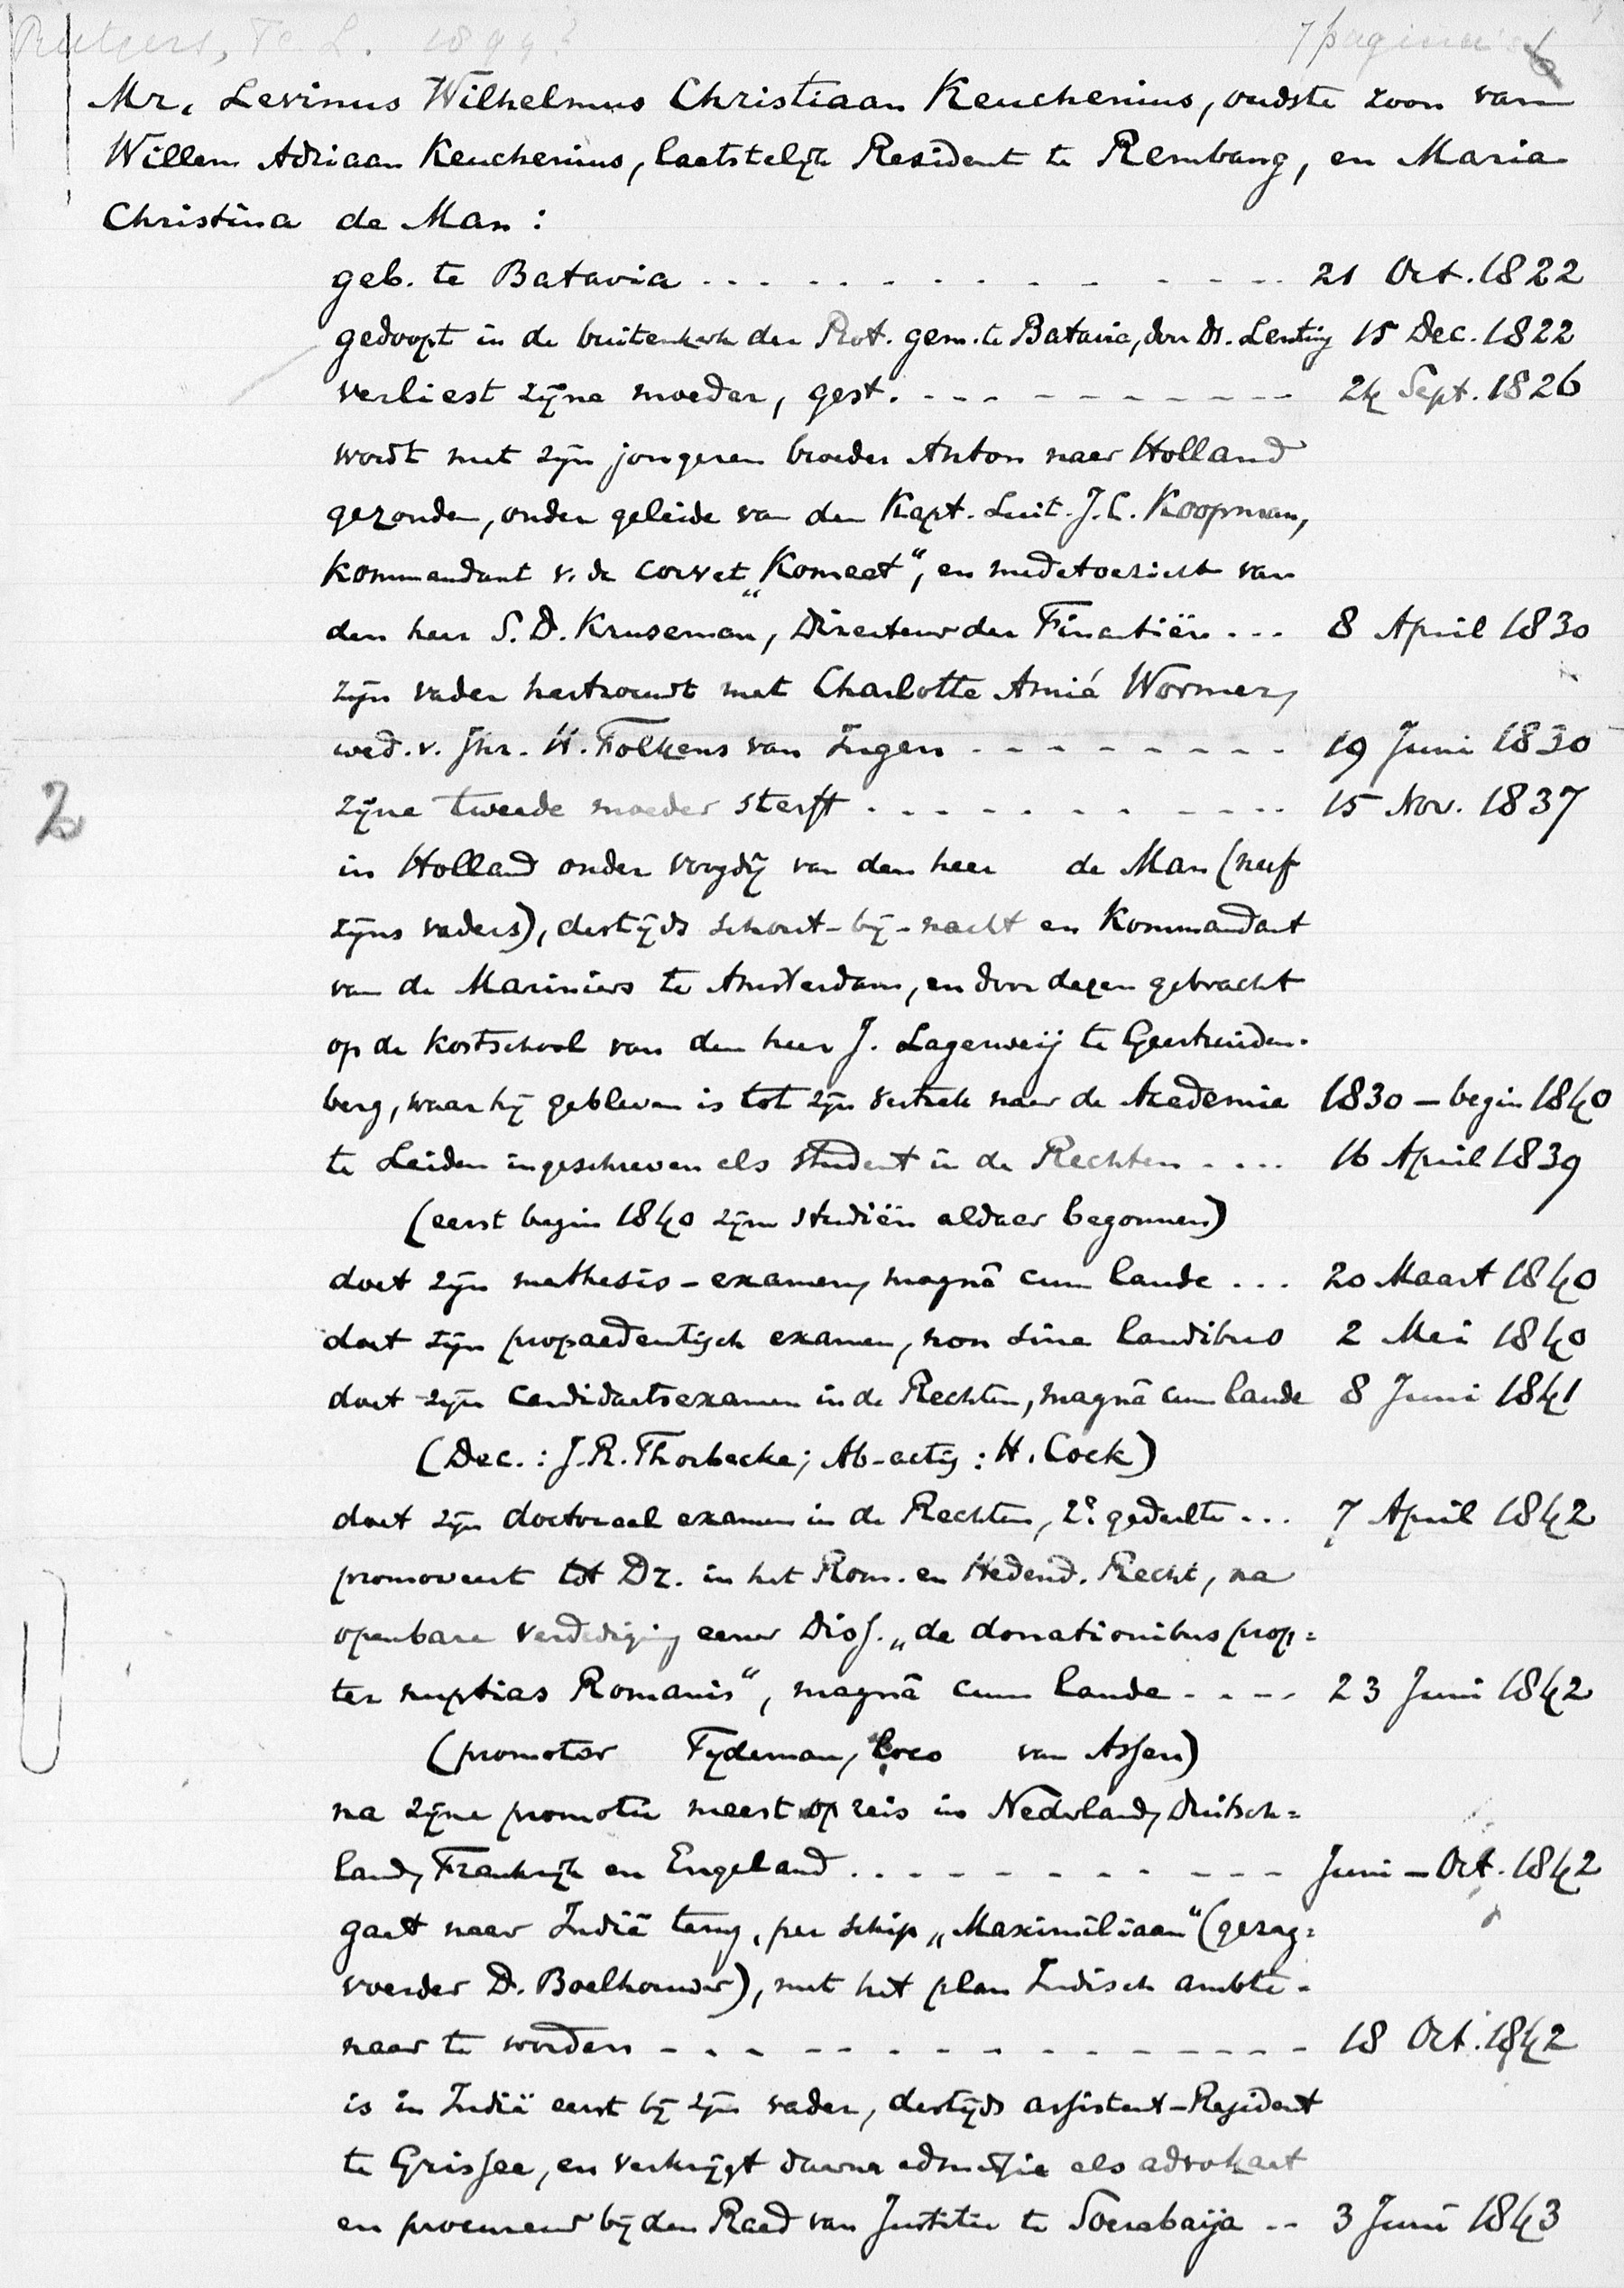 Rutgers, F. L. 1894? 7 pagina's
Mr. Levinus Wilhelmus Christiaan Keuchenius, oudste zoon van
Willem Adriaan Keuchenius, laatstelijk Resident te Rembang, en Maria
Christina de Man:
geb. te Batavia . . . . . . . . . . . . . 21 Oct. 1822
gedoopt in de buitenkerk der Prot. gem. te Batavia, door Ds. Lenting 15 Dec. 1822
verliest zijne moeder, gest. . . . . . . . . . . 24 Sept. 1826
wordt met zijn jongeren broeder Anton naar Holland
gezonden, onder geleide van den Kapt. Luit. J. C. Koopman,
kommandant v. de corvet „Komeet“, en medetoezicht van
den heer S. D. Kruseman, Directeur der Financiën . . . 8 April 1830
zijn vader hertrouwt met Charlotte Amié Wormer,
wed. v. Jhr. H. Folkens van Ingen . . . . . . . . 19 Juni 1830
zijne tweede moeder sterft . . . . . . . . . . 15 Nov. 1837
2
in Holland onder voogdij van den heer de Man (neef
zijns vaders), destijds schout-bij-nacht en Kommandant
van de Mariniers te Amsterdam, en door dezen gebracht
op de kostschool van den heer J. Lagerweij te Geertruiden-
berg, waar hij gebleven is tot zijn vertrek naar de Academie 1830 – begin 1840
te Leiden ingeschreven als student in de Rechten . . . . 16 April 1839
(eerst begin 1840 zijne studiën aldaar begonnen)
doet zijn mathesis-examen, magnâ cum laude . . . 20 Maart 1840
doet zijn propaedeutisch examen, non sine laudibus 2 Mei 1840
doet zijn candidaatsexamen in de Rechten, magnâ cum laude 8 Juni 1841
(Dec.: J. R. Thorbecke; Ab-actis: H. Cock)
doet zijn doctoraal examen in de Rechten, 2e gedeelte . . . 7 April 1842
promoveert tot Dr. in het Rom. en Hedend. Recht, na
openbare verdediging eener Diss. „de donationibus prop=
ter nuptias Romanis“, magnâ cum laude . . . . 23 Juni 1842
(promotor Tydeman, loco van Assen)
na zijne promotie meest op reis in Nederland, Duitsch=
land, Frankrijk en Engeland . . . . . . . . . . . Juni – Oct. 1842
gaat naar Indië terug, per schip „Maximiliaan“ (gezag=
voerder D. Boelhouwer), met het plan Indisch ambte-
naar te worden . . . . . . . . . . . . . . . 18 Oct. 1842
is in Indië eerst bij zijn vader, destijds assistent-Resident
te Grissee, en verkrijgt daarna admissie als advokaat
en procureur bij den Raad van Justitie te Soerabaija . . 3 Juni 1843